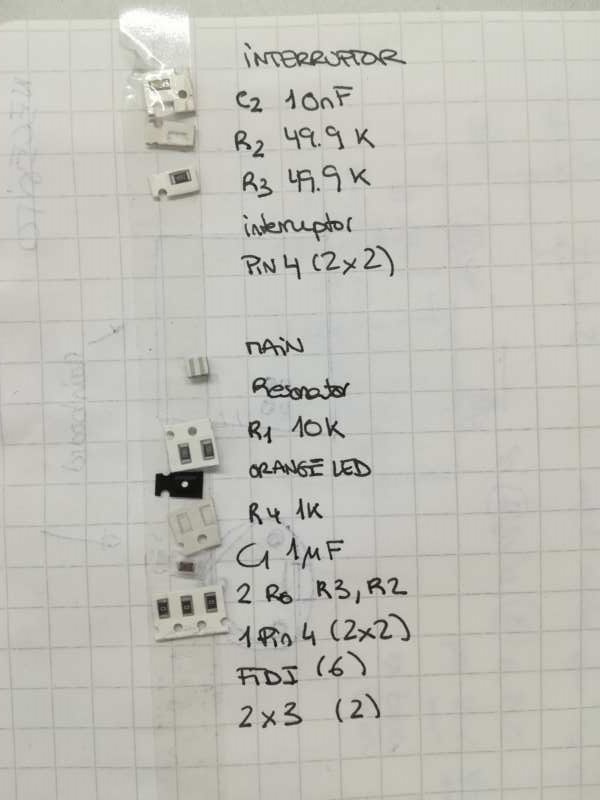 INTERRUPTOR
C2 10nF
R2 49.9 K
R3 49.9 K
interruptor
PiN 4 (2x2)
MAIN
Resonator
R1 10K
ORANGE LED
R4 1K
C1 1µF
2 R0 R3, R2
1 Pin 4 (2x2)
FTDI (6)
2x3 (2)